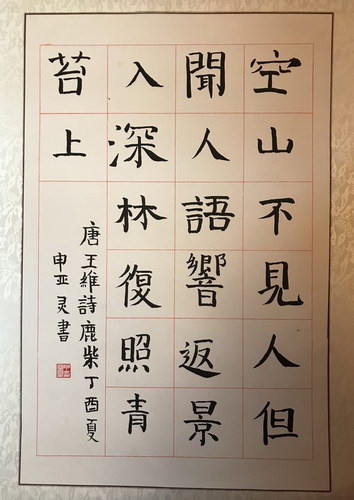 空山不見人但
聞人語響返景
入深林復照青
苔上
唐王維詩鹿柴丁酉夏
申亚灵書